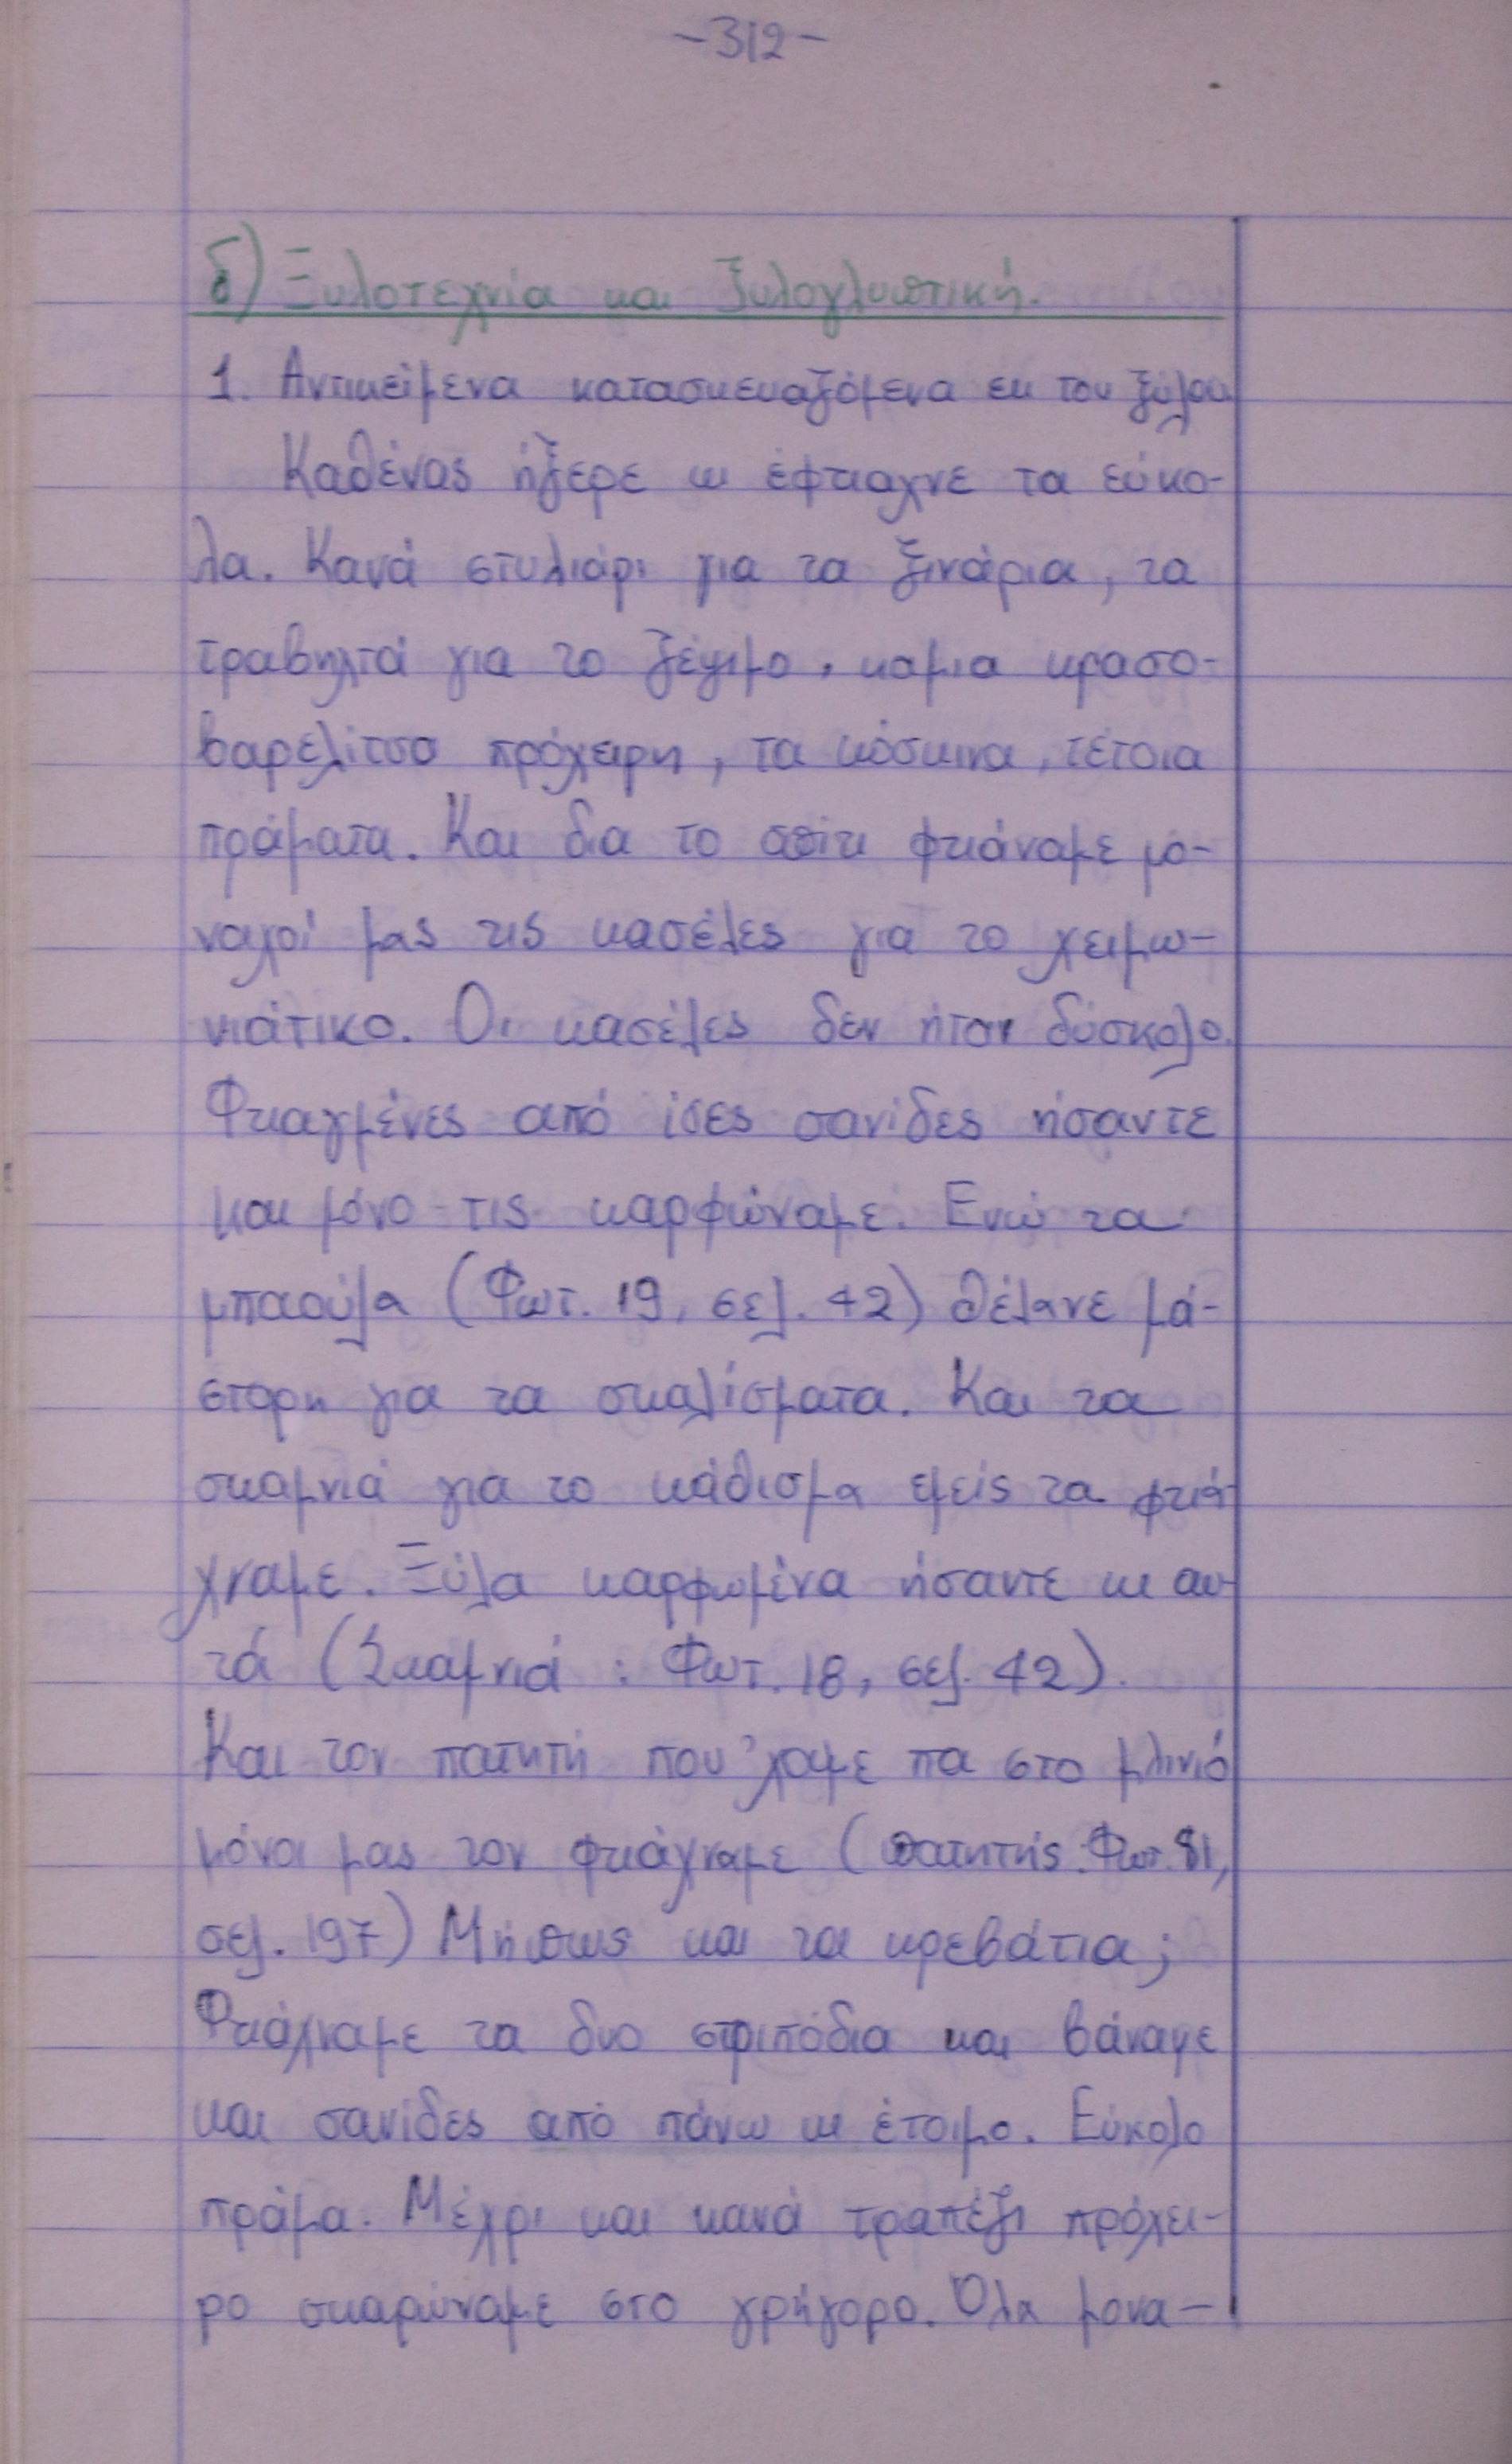 -312-
δ) Ξυλοτεχνία και ξυλογλυπτική.
1. Αντικείμενα κατασκευαζόμενα εκ του ξύλου
Καθένας ήξερε κι έφτιαχνε τα εύκο-
λα. Κανά στυλιάρι για τα ξινάρια, τα
τραβηχτά για το ζέψιμο, καμια κρασο-
βαρελίτσα πρόχειρη, τα κόσκινα, τέτοια
πράματα. Και δια το σπίτι φτιάναμε μο-
ναχοί μας τις κασέλες για το χειμω-
νιάτικο. Οι κασέλες δεν ήταν δύσκολο.
Φτιαγμένες από ίσες σανίδες ήσαντε
και μόνο τις καρφώναμε. Ενώ τα
μπαούλα (Φωτ. 19, σελ. 42) θέλανε μά-
στορη για τα σκαλίσματα. Και τα
σκαμνιά για το κάθισμα εμείς τα φτιά-
χναμε. Ξύλα καρφωμένα ήσαντε κι αυ-
τά (Σκαμνιά : Φωτ. 18, σελ. 42).
Και τον πατητή που 'χαμε πα στο μλινιό
μόνοι μας τον φτιάχναμε (πατητής. Φωτ. 81,
σελ. 197) Μήπως και τα κρεβάτια;
Φτιάχναμε τα δυο στριπόδια και βάναμε
και σανίδες από πάνω κι έτοιμο. Εύκολο
πράμα. Μέχρι και κανά τραπέζι πρόχει-
ρο σκαρώναμε στο γρήγορο. Όλα μονα-